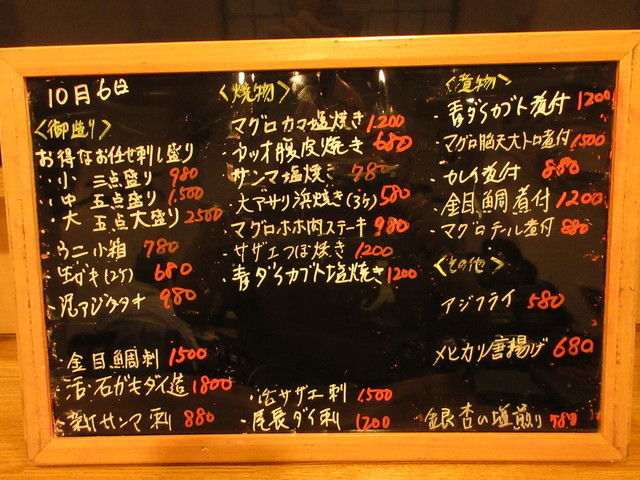 10月6日
<御造り>
お得なお任せ刺し盛り
・小 三点盛り 980
・中 五点盛り 1.500
・大 五点大盛り 2500
・ウニ小箱 780
・生ガキ(2ケ) 680
・活アジタタキ 980
・金目鯛刺 1500
活・石ガキダイ造 1800
・新サンマ刺 880
<焼物>
・マグロカマ塩焼き 1200
・カツオ腹皮焼き 680
サンマ塩焼き 780
・大アサリ浜焼き(3ケ) 580
・マグロホホ肉ステーキ 980
・サザエつぼ焼き 1200
・青ダイカブト塩焼き 1200
・活サザエ刺 1.500
・尾長ダイ刺 1200
<煮物>
・青ダイカブト煮付 1200
・マグロ脳天大トロ煮付 1.500
・カレイ煮付 880
・金目鯛煮付 1200
・マグロテール煮付 880
<その他>
アジフライ 580
メヒカリ唐揚げ 680
銀杏の塩煎り 780